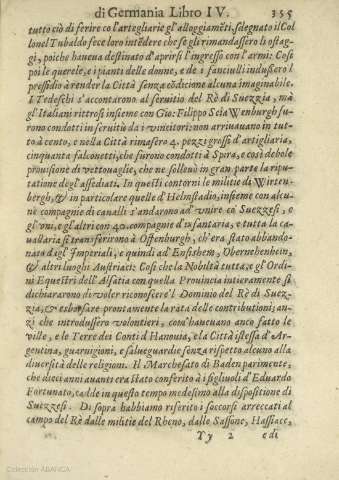 di Germania Libro IV. 355
tutto ciò di ferire co l'artegliarie gl'alloggiamẽti, sdegnato il Col
lonel Tubaldo fece loro intẽdere che se gli rimandassero li ostag-
gi, poiche haueva destinato d'aprirsi l'ingresso con l'armi: Così
poi le querele, e i pianti delle donne, e de i fanciulli indussero l
pressidio à render la Città senza cõdicione alcuna imaginabile.
I Tedeschi s'accontarono al seruitio del Rè di Suezzia, mà
gl'Italiani ritrosi insieme con Gio: Filippo Seia Wenburgh fu-
rono condotti in seruitù da i vincitori: non arriuauano in tut-
to à cento, e nella Città rimasero 4. pezzi grossi d'artigliaria,
cinquanta falconetti, che furono condotti à Spira, e così debole
prouisione di vettouaglie, che ne solleuò in gran parte la ripu-
tatione degl'assediati. In questi contorni le militie di Wirten-
bergh, & in particolare quelle d'Helnstadio, insieme con alcu-
ne compagnie di caualli s'andarono ad vnire co' Suezzesi, e
gl'vni, e gl'altri con 40. compagnie d'infantaria, e tutta la ca-
uallaria si transferirono à Offenburgh, ch'era stato abbando-
nato da egl'Imperiali, e quindi ad Ensishem, Obernehenhein,
& altri luoghi Austriaci: Così che la Nobiltà tutta, e gl'Ordi-
ni Equestri dell'Alsatia con quella Prouincia intieramente si
dichiararono di voler riconoscere'l Dominio del Rè di Suez-
zia, & esborsare prontamente la rata delle contributioni; an-
zi che introdussero volontieri, com'haueuano anco fatto le
ville, e le Terre dei Conti d'Hanouia, e la Città istessa d'Ar-
gentina, guarnigioni, e salueguardie senza rispetto alcuno alla
diuersità delle religioni. Il Marchesato di Baden parimente,
che dieci anni auanti era stato conferito à i figliuoli d'Eduardo
Fortunato, cadde in questo tempo medesimo alla dispositione di
Suezzesi. Di sopra habbiamo riferito i soccorsi arreccati al
campo del Rè dalle militie del Rheno, dalle Sassone, Hassiace,
Yy 2 edi
Colección ABANCA